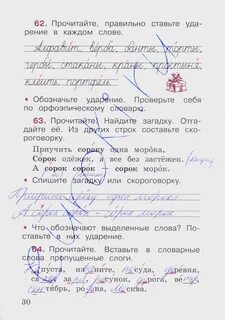 62. Прочитайте, правильно ставьте уда-
рение в каждом слове.
Алфави́т, ве́рба, ба́нты, то́рты,
стака́ны, кра́ны, простыня́,
кле́ить, портфе́ль
• Обозначьте ударение. Проверьте себя
по орфоэпическому словарю.
63. Прочитайте. Найдите загадку. Отгадай-
те её. Из других строк составьте ско-
роговорку.
Приучить сороку одна морока,
Сорок одёжек, а все без застёжек.
А сорок – сорок морок.
• Спишите загадку или скороговорку.
Приучить одна морока
А сорок сорок – сорок морок
• Что обозначают выделенные слова? По-
ставьте в них ударение.
64. Прочитайте. Вставьте в словарные
слова пропущенные слоги.
Капуста, извините, посуда, деревня,
рисунок, дорога,
портфель, родина, Москва.
30